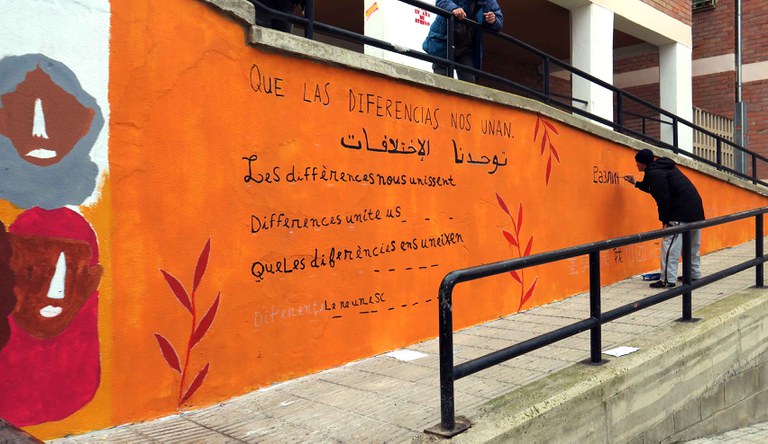 QUE LAS DIFERENCIAS NOS UNAN.
توحدنا الإختلافات
Les différences nous unissent
Differences unite us
Que Les diferències ens uneixen
Diferențele ne unesc
Разли